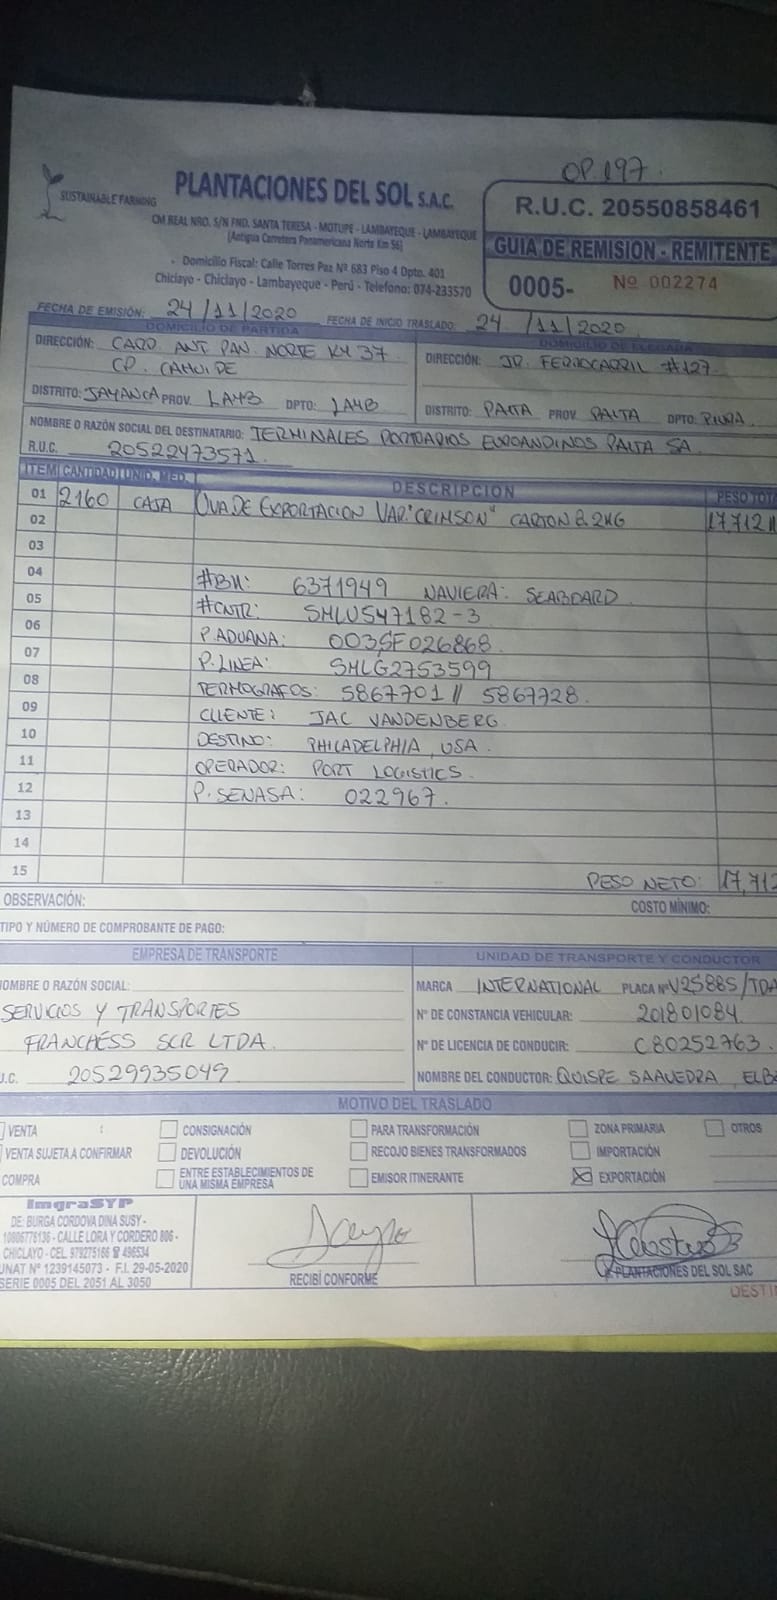 OP.197.
SUSTAINABLE FARMING
PLANTACIONES DEL SOL S.A.C.
CM REAL NRO. S/N FND. SANTA TERESA - MOTUPE - LAMBAYEQUE - LAMBAYEQUE
(Antigua Carretera Panamericana Norte Km 56)
Domicilio Fiscal: Calle Torres Paz Nº 683 Piso 4 Dpto. 401
Chiclayo - Chiclayo - Lambayeque - Perú - Telefono: 074-233570
R.U.C. 20550858461
GUIA DE REMISION - REMITENTE
0005- Nº 002274
FECHA DE EMISIÓN: 24/11/2020 FECHA DE INICIO TRASLADO: 24/11/2020
DOMICILIO DE PARTIDA DOMICILIO DE LLEGADA
DIRECCIÓN: CARR. ANT. PAN. NORTE KM 37 DIRECCIÓN: JR. FERROCARRIL #127
CP. CAHUIDE
DISTRITO: JAYANCA PROV. LAMB DPTO: LAMB DISTRITO: PAITA PROV PAITA DPTO: PIURA
NOMBRE O RAZÓN SOCIAL DEL DESTINATARIO: TERMINALES PORTUARIOS EUROANDINOS PAITA SA
R.U.C. 20522473571
ITEM CANTIDAD UNID. MED. DESCRIPCION PESO TOT
01 2160 CAJA UVA DE EXPORTACION VAR."CRIMSON" CARTON 8.2KG 17,712
02
03
04 #BK: 6371949 NAVIERA: SEABOARD
05 #CNTR: SMLU547182-3
06 P.ADUANA: 003SF026868
07 P.LINEA: SMLG2753599
08 TERMOGRAFOS: 5867701 // 5867728.
09 CLIENTE: JAC VANDENBERG
10 DESTINO: PHILADELPHIA, USA.
11 OPERADOR: PORT LOGISTICS.
12 P.SENASA: 022967.
13
14
15 PESO NETO: 17,712
OBSERVACIÓN: COSTO MÍNIMO:
TIPO Y NÚMERO DE COMPROBANTE DE PAGO:
EMPRESA DE TRANSPORTE UNIDAD DE TRANSPORTE Y CONDUCTOR
NOMBRE O RAZÓN SOCIAL: MARCA INTERNATIONAL PLACA Nº V2S885/TDA
SERVICIOS Y TRANSPORTES Nº DE CONSTANCIA VEHICULAR: 201801084
FRANCHESS SCR LTDA. Nº DE LICENCIA DE CONDUCIR: C80252763.
U.C. 20529935049 NOMBRE DEL CONDUCTOR: QUISPE SAAVEDRA, ELB
MOTIVO DEL TRASLADO
VENTA CONSIGNACIÓN PARA TRANSFORMACIÓN ZONA PRIMARIA OTROS
VENTA SUJETA A CONFIRMAR DEVOLUCIÓN RECOJO BIENES TRANSFORMADOS IMPORTACIÓN
COMPRA ENTRE ESTABLECIMIENTOS DE UNA MISMA EMPRESA EMISOR ITINERANTE EXPORTACIÓN
ImgraSYP
DE: BURGA CORDOVA DINA SUSY -
10806776136 - CALLE LORA Y CORDERO 806 -
CHICLAYO - CEL. 979275166 ☎ 496534
UNAT Nº 1239145073 - F.I. 29-05-2020
SERIE 0005 DEL 2051 AL 3050
RECIBÍ CONFORME
PLANTACIONES DEL SOL SAC
DESTI